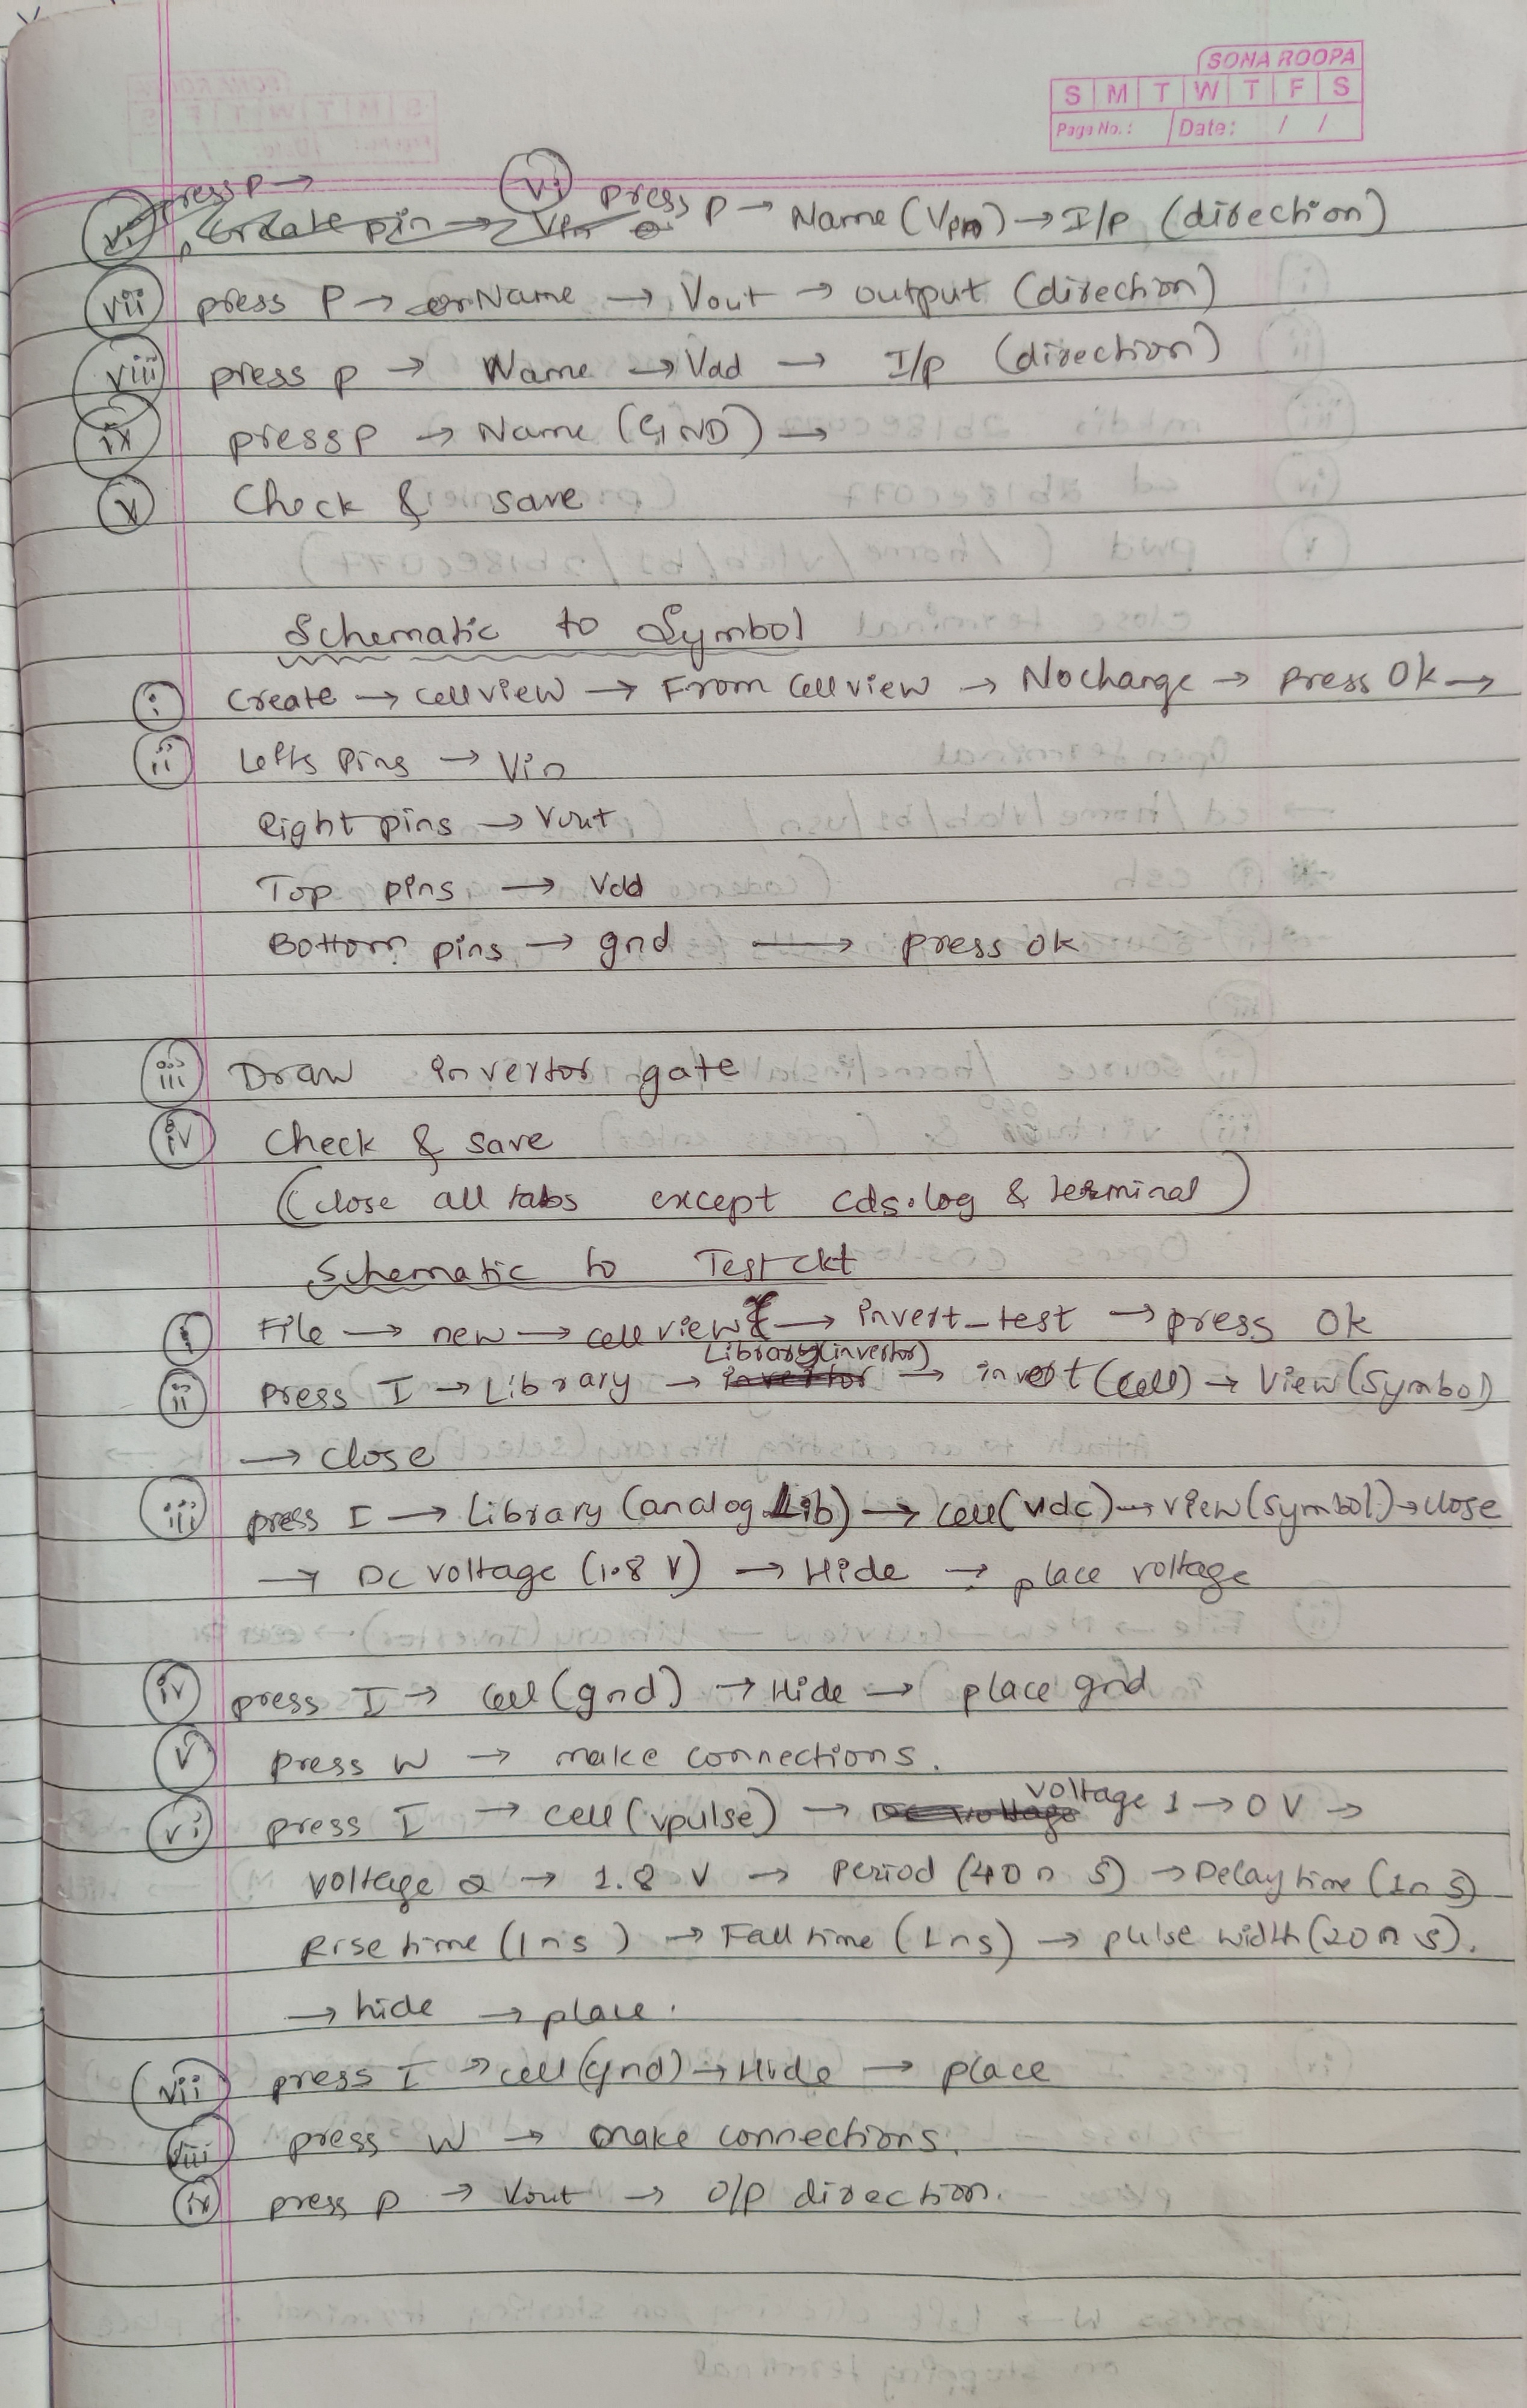 SONA ROOPA
S M T W T F S
Page No.: Date: / /
press p →
vi press p → Name (Vpin) → I/p (direction)
vii press P → Name → Vout → output (direction)
viii press p → Name → Vdd → I/p (direction)
ix press p → Name (GND) →
x Check & save
Schematic to Symbol
i Create → cellview → From Cellview → No change → press Ok →
ii Lefts Pins → Vin
Right pins → Vout
Top pins → Vdd
Bottom pins → gnd → press ok
iii Draw invertor gate
iv Check & save
(close all tabs except cds.log & terminal)
Schematic to Test ckt
i File → new → cell view → invert_test → press Ok
ii press I → Library → Library(invertor) → invert (cell) → View (Symbol)
→ close
iii press I → Library (analog Lib) → cell(vdc) → view (symbol) → close
→ DC voltage (1.8 V) → Hide → place voltage
iv press I → cell (gnd) → Hide → place gnd
v press W → make connections.
vi press I → cell (vpulse) → voltage 1 → 0 V →
voltage 2 → 1.8 V → Period (40n s) → Delay time (1n s)
Rise time (1ns) → Fall time (1ns) → pulse width (20n s).
→ hide → place.
vii press I → cell (gnd) → Hide → place
viii press W → make connections.
ix press p → Vout → O/p direction.